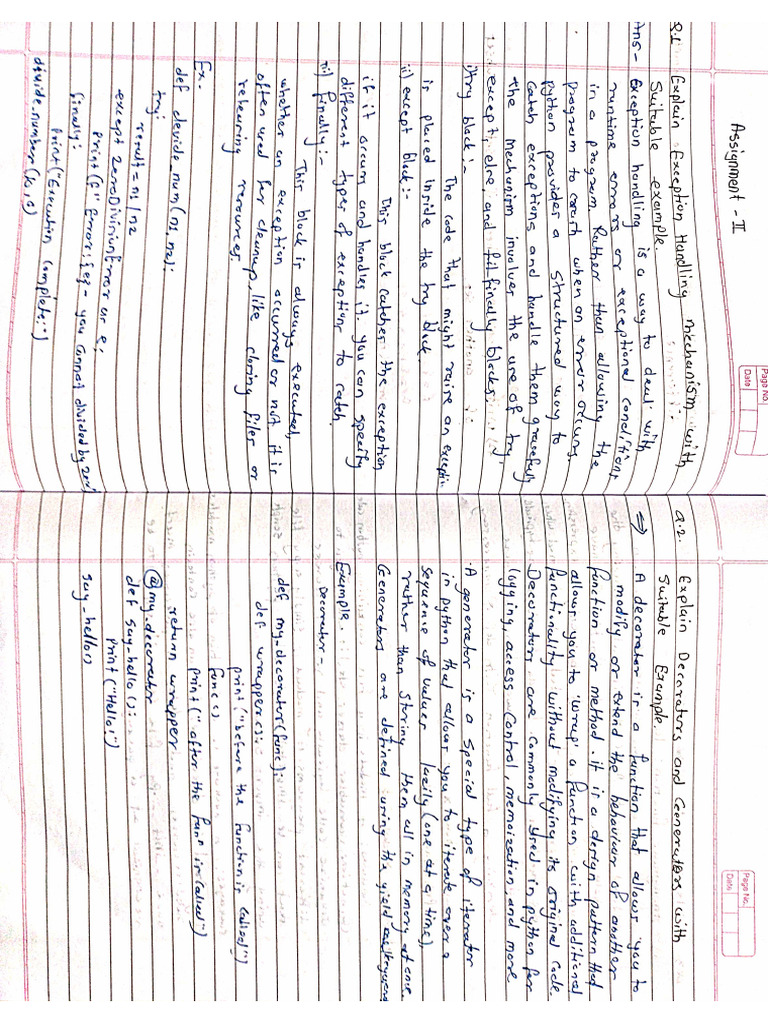 Assignment - II
Page No.
Date
Q.1 Explain Exception Handling mechanism with
Suitable example.
Ans- Exception handling is a way to deal with
runtime errors or exceptional conditions
in a program. Rather than allowing the
program to crash when an error occurs.
python provides a structured way to
catch exceptions and handle them gracefully
the mechanism involves the use of try,
except, else and finally blocks.
i) try block :-
The code that might raise an exception
is placed inside the try block.
ii) except block :-
This block catches the exception
if it occurs and handles it. you can specify
different types of exceptions to catch.
iii) finally :-
This block is always executed,
whether an exception occurred or not it is
often used for cleanup, like closing files or
releasing resources.
Ex.
def devide_num(n1, n2):
try:
result = n1/n2
except zeroDivisionError as e:
print(f"Error: {e} - you cannot divided by zero")
finally:
print("Execution complete:")
divide_number(10, 0)
Page No.
Date
Q.2. Explain Decorators and Generators with
Suitable Example.
⇒ A decorator is a function that allows you to
modify or extend the behaviour of another
function or method. it is a design pattern that
allows you to 'wrap' a function with additional
functionality without modifying its original code.
Decorators are commonly used in python for
logging, access control, memoization, and more
· A generator is a special type of iterator
in python that allows you to iterate over a
sequence of values lazily (one at a time)
rather than storing them all in memory at once
Generators are defined using the yield keyword
Example.
Decorator -
def my_decorator(func):
def wrapper():
print("before the function is called")
func()
print(" after the func is called")
return wrapper
@my_decorator
def say_hello():
print("Hello!")
say_hello()